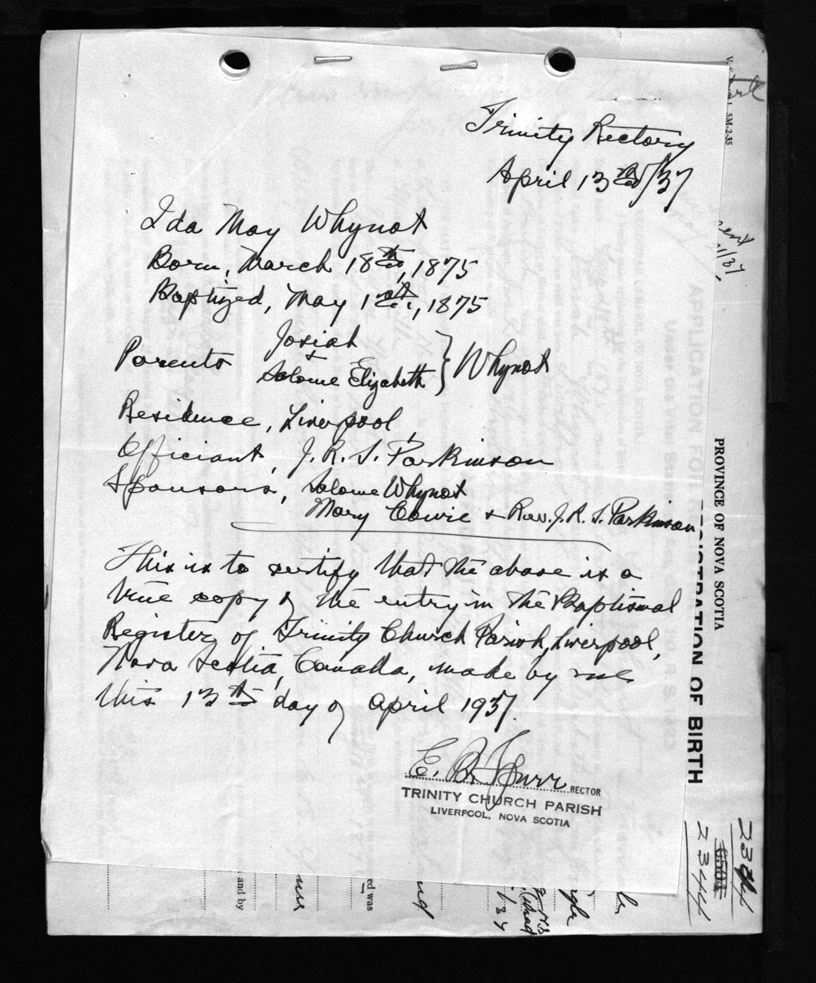 Trinity Rectory
April 13th/37
Ida May Whynot
Born, March 18th, 1875
Baptized, May 1st, 1875
Parents Josiah
+
Salome Elizabeth } Whynot
Residence, Liverpool,
Officiant, J. R. S. Parkinson
Sponsors, Salome Whynot
Mary Cowie + Rev. J. R. S. Parkinson
This is to certify that the above is a
true copy of the entry in the Baptismal
Register of Trinity Church Parish, Liverpool,
Nova Scotia, Canada, made by me
this 13th day of April 1937.
E. B. Spurr RECTOR
TRINITY CHURCH PARISH
LIVERPOOL, NOVA SCOTIA
PROVINCE OF NOVA SCOTIA
REGISTRATION OF BIRTH
5M-2-35
and by
ed was
2344